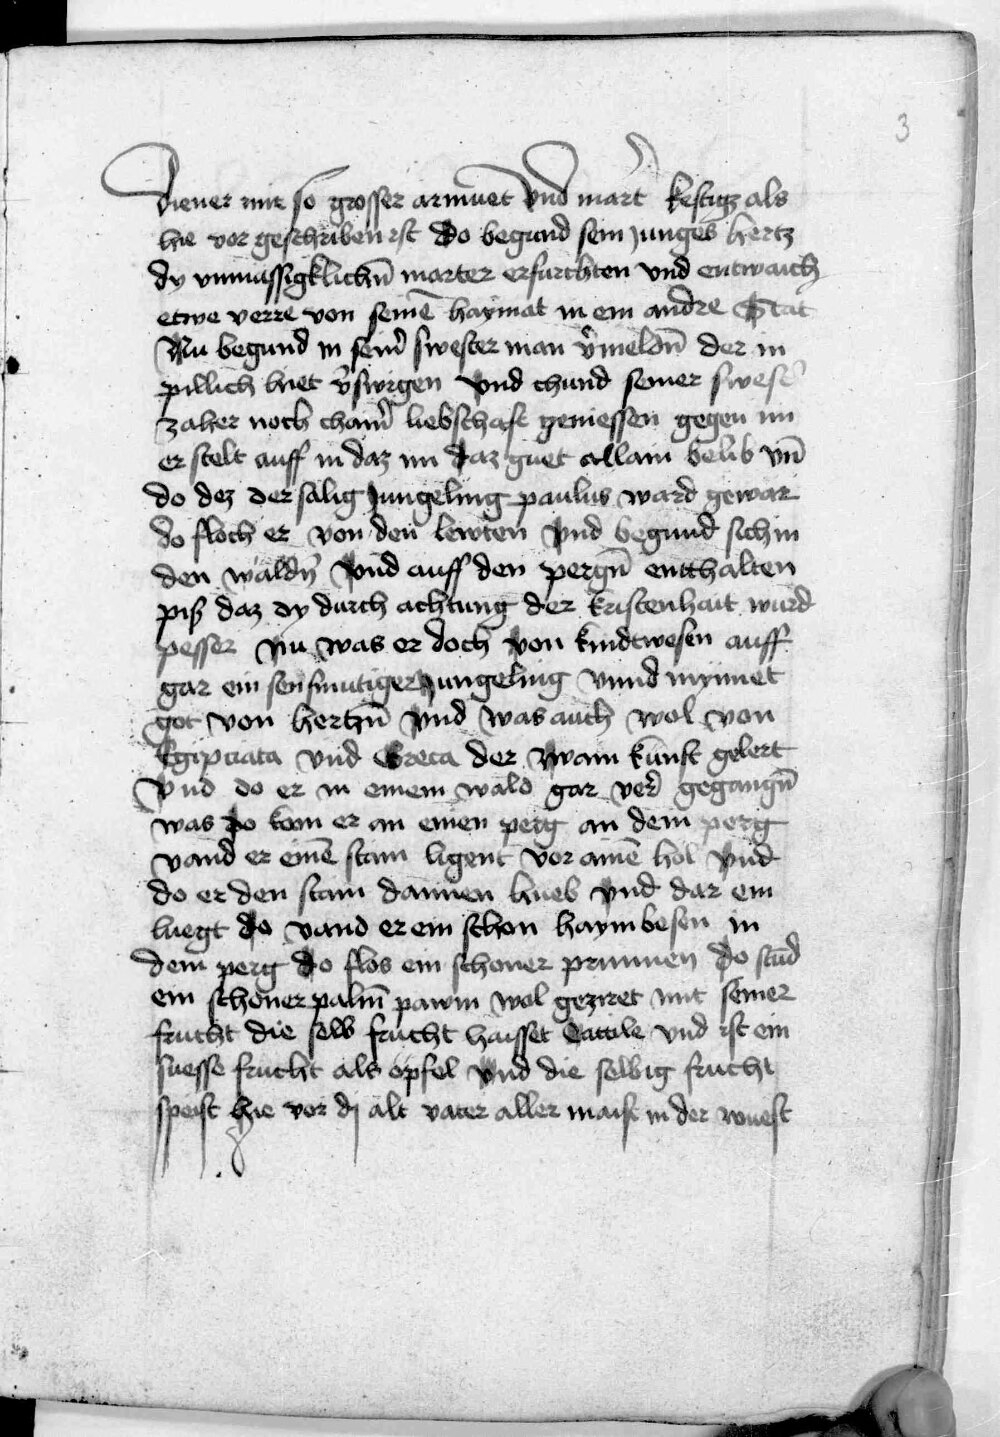 3
diener mit so grosser armuet vnd mart̾ kestigz als
hie vor geschriben ist do begund sein junges hertz
dy vnmassigklichn̄ marter erfurchten vnd entwaich
etwe verre von seinē haymat in ein andre Stat
Nu begund in sein̄ swester man v̾meldn̄ der in
pillich hiet v̾swigen vnd chund seiner swest̾
zaher noch chain̄ liebschaft geniessen gegen im
er stelt auff in daz im daz guet allain belib vn̄
do dez der salig Jungeling paulus ward gewar
do floch er von den lewten vnd begund sich in
den waldn̄ vnd auff den pergn̄ entthalten
piß daz dy durch achtung der kristenhait wurd
pesser Nu was er doch von kindtwesen auff
gar ein senfmutiger Jungeling vnnd mynnet
got von hertzn̄ vnd was auch wol von
Egiptiaca vnd Greca der zwain kunst gelert
Vnd do er in einem wald gar ver̄ gegangn̄
was do kom er an einen perg an dem perg
vand er einē stain ligent vor ainē hol vnd
do er den stain dannen hueb vnd dar ein
luegt do vand er ein schon haymbesen in
dem perg do flos ein schoner prunnen do stūd
ein schoner palm̄ pawm wol geziret mit seiner
frucht die selb frucht haisset Tattile vnd ist ein
suesse frucht als opfel vnd die selbig frucht
speist hie vor dj alt vater aller maist in der wuest